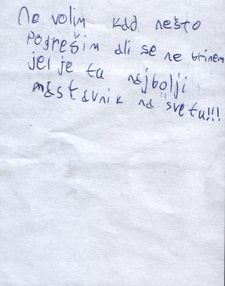 Ne volim kad nešto
pogrešim ali se ne brinem
jel je tu najbolji
nastavnik na svetu!!!